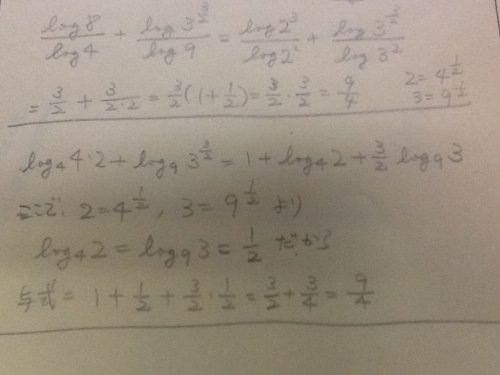 log8/log4 + log3^(3/2)/log9 = log2^3/log2^2 + log3^(3/2)/log3^2
= 3/2 + 3/(2·2) = 3/2(1+1/2) = 3/2·3/2 = 9/4
2=4^(1/2)
3=9^(1/2)
log₄4·2+log₉3^(3/2) = 1+log₄2+3/2 log₉3
ここで、2=4^(1/2), 3=9^(1/2) より
log₄2=log₉3=1/2 だから
与式= 1+1/2+3/2·1/2=3/2+3/4=9/4